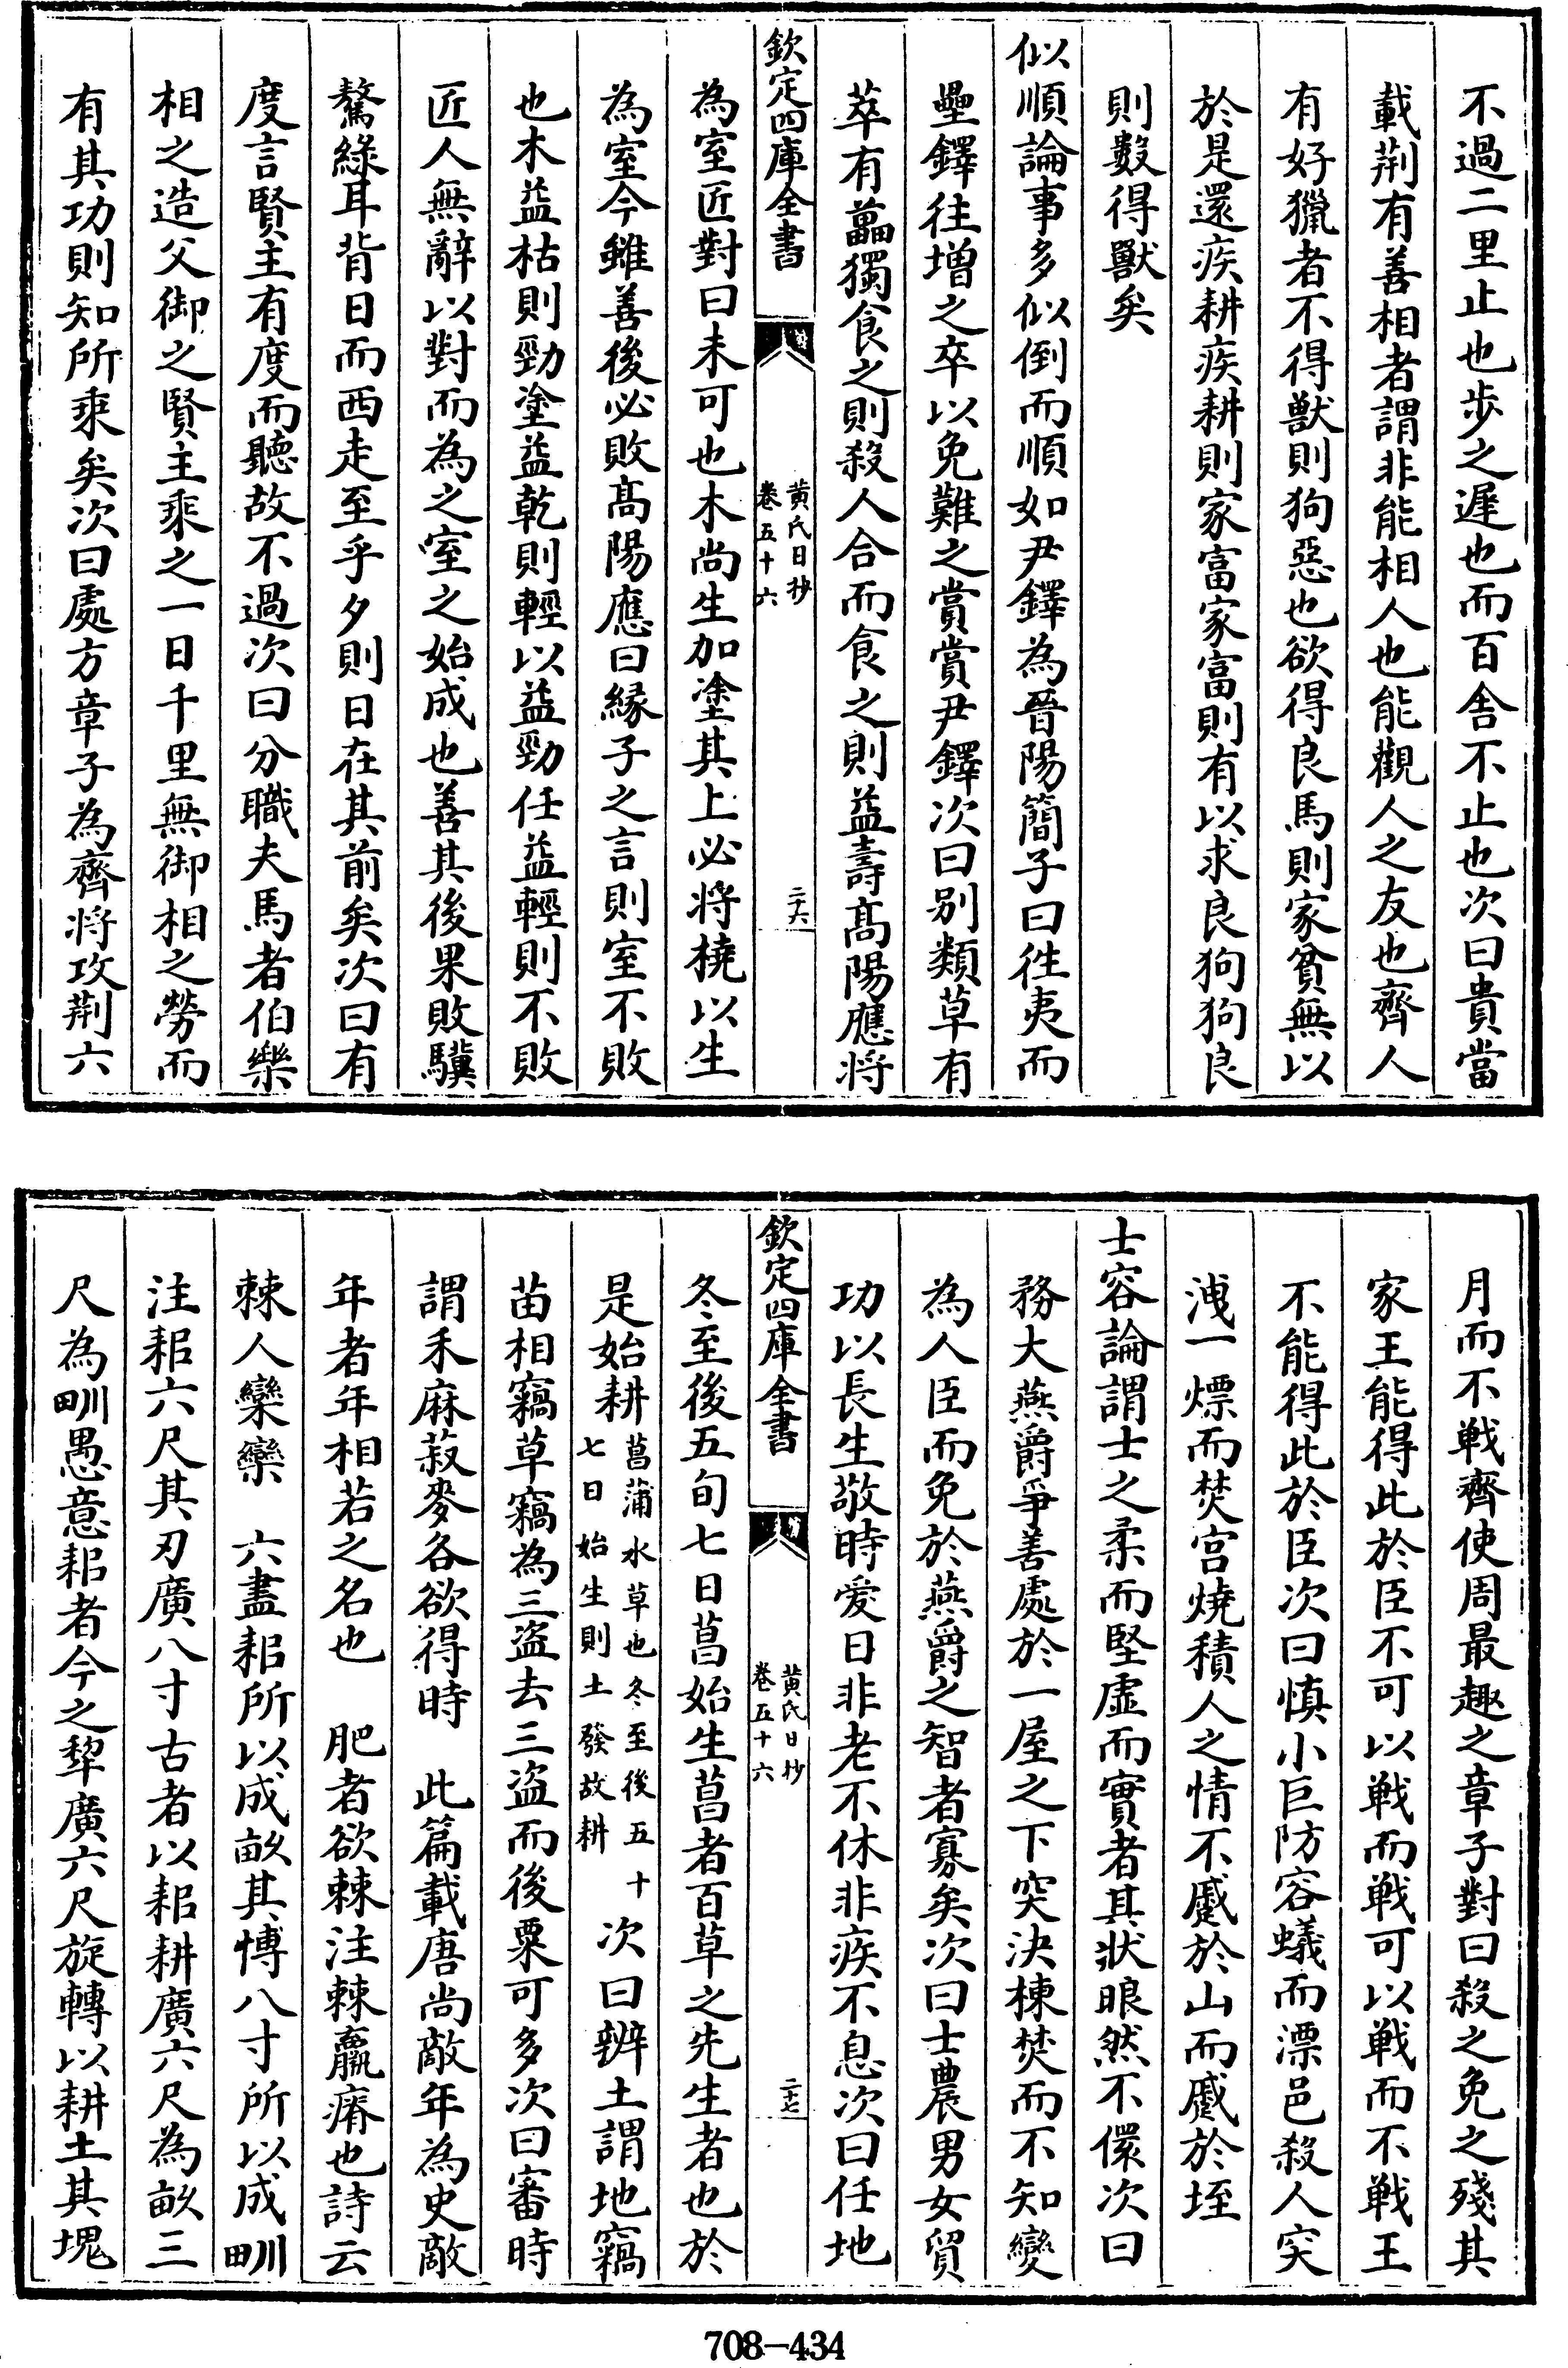 不過二里止也步之遲也而百舎不止也次曰貴當
載荆有善相者謂非能相人也能觀人之友也齊人
有好獵者不得獸則狗惡也欲得良馬則家貧無以
於是還疾耕疾耕則家富家富則有以求良狗狗良
則數得獸矣
似順論事多似倒而順如尹鐸為晉陽簡子曰徃夷而
壘鐸往增之卒以免難之賞賞尹鐸次曰别類草有
萃有藟獨食之則殺人合而食之則益壽髙陽應将
欽定四庫全書
黄氏日抄
卷五十六
二十六
為室匠對曰未可也木尚生加塗其上必将橈以生
為室今雖善後必敗髙陽應曰縁子之言則室不敗
也木益枯則勁塗益乾則輕以益勁任益輕則不敗
匠人無辭以對而為之室之始成也善其後果敗驥
驁綠耳背日而西走至乎夕則日在其前矣次曰有
度言賢主有度而聽故不過次曰分職夫馬者伯樂
相之造父御之賢主乘之一日千里無御相之勞而
有其功則知所乘矣次曰處方章子為齊将攻荆六
月而不戰齊使周最趣之章子對曰殺之免之殘其
家王能得此於臣不可以戰而戰可以戰而不戰王
不能得此於臣次曰慎小巨防容蟻而漂邑殺人突
洩一熛而焚宫燒積人之情不蹙於山而蹙於垤
士容論謂士之柔而堅虛而實者其狀㫰然不儇次曰
務大燕爵爭善處於一屋之下突決棟焚而不知變
為人臣而免於燕爵之智者寡矣次曰士農男女貿
功以長生敬時愛日非老不休非疾不息次曰任地
欽定四庫全書
黄氏日抄
卷五十六
二十七
冬至後五旬七日菖始生菖者百草之先生者也於
是始耕菖蒲水草也冬至後五十七日始生則土發故耕次曰辨土謂地竊
苗相竊草竊為三盗去三盗而後粟可多次曰審時
謂禾麻菽麥各欲得時　此篇載唐尚敵年為史敵
年者年相若之名也　肥者欲棘注棘羸瘠也詩云
棘人欒欒　六盡耜所以成畝其博八寸所以成甽
注耜六尺其刃廣八寸古者以耜耕廣六尺為畝三
尺為甽愚意耜者今之犂廣六尺旋轉以耕土其塊
708-434